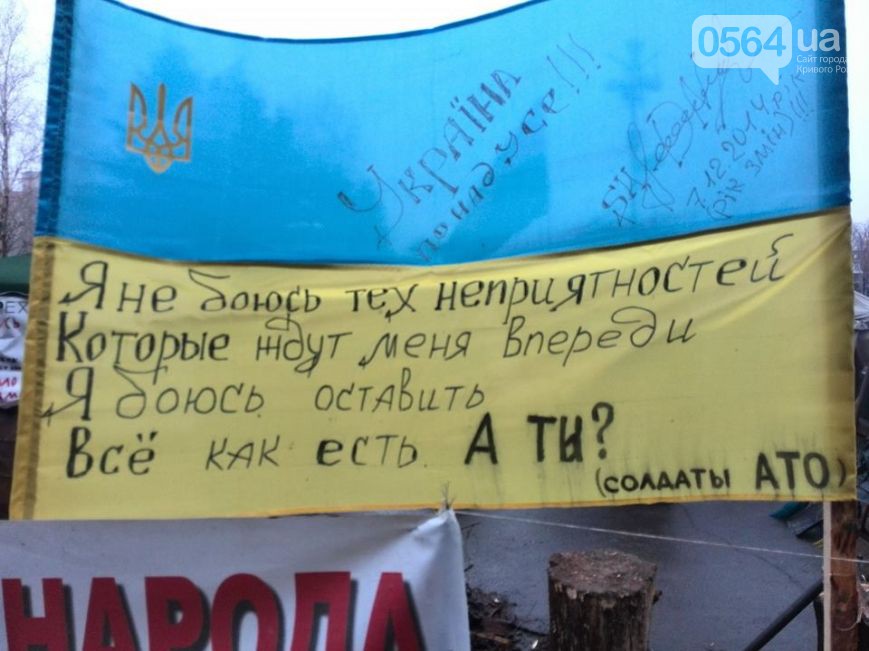 0564 ua
Сайт города
Кривого Ро
УКРАЇНА
понад усе!!!
7.12.2014 рік
(рік змін)!!!
Я не боюсь тех неприятностей
Которые ждут меня впереди
Я боюсь оставить
Всё как есть. А ТЫ?
(солдаты АТО)
НАРОДА